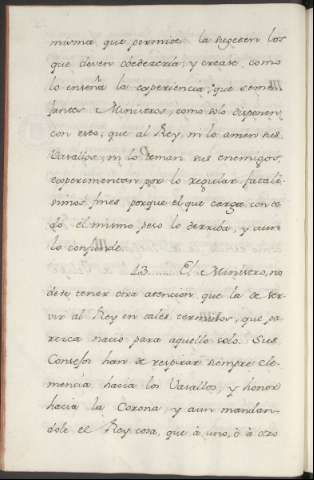 misma que permite la hegesen los
que deven obedecerla; y crease, como
lo enseña la experiencia, que seme-
jantes Ministros, como solo disponen
con esto, que al Rey, ni lo amen sus
Vasallos, ni lo teman sus enemigos,
experimentan por lo regular fatalí-
simos fines porque el que carga con to-
do, el mismo peso lo derriba, y aun
lo confunde.
43. El Ministro, no
deve tener otra atencion, que la de ser-
vir al Rey en tales terminos, que pa-
rezca nacio para aquello solo. Sus
Consejos han de respirar siempre cle-
mencia hacia los Vasallos, y honor
hacia la Corona, y aun mandan-
dole el Rey cosa, que à uno, ò à otro